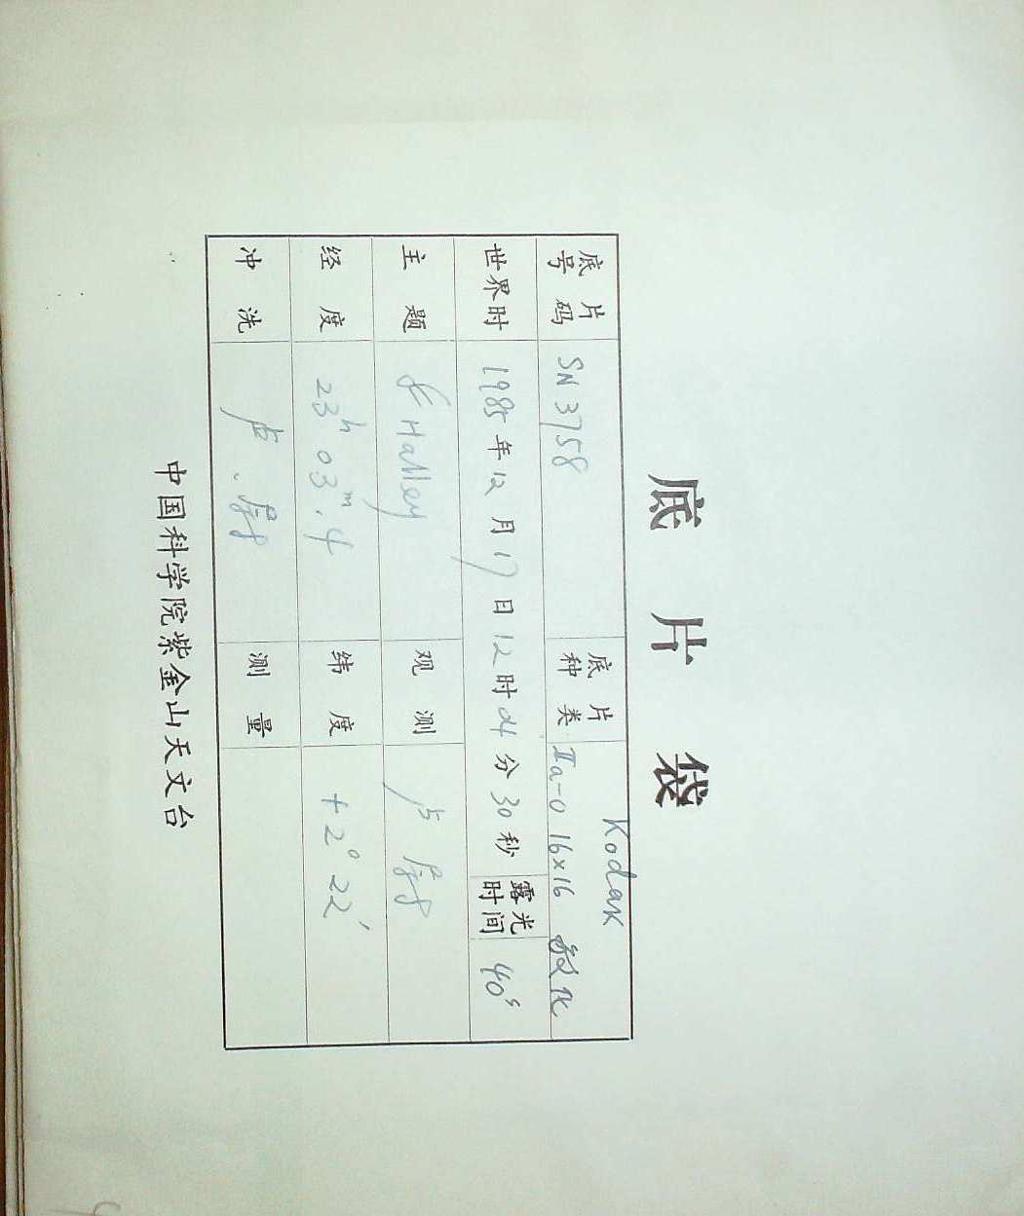 底片袋
Kodak
底片号码 SN 3758 底片种类 IIa-O 16×16 敏化
世界时 1985年12月17日12时04分30秒 露光时间 40s
主题 Halley 观测 卢
经度 23h 03m.4 纬度 +2° 22′
冲洗 卢、 测量
中国科学院紫金山天文台